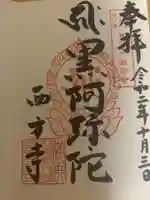 奉拝
令和二年十月三日
黒阿弥陀
西方寺